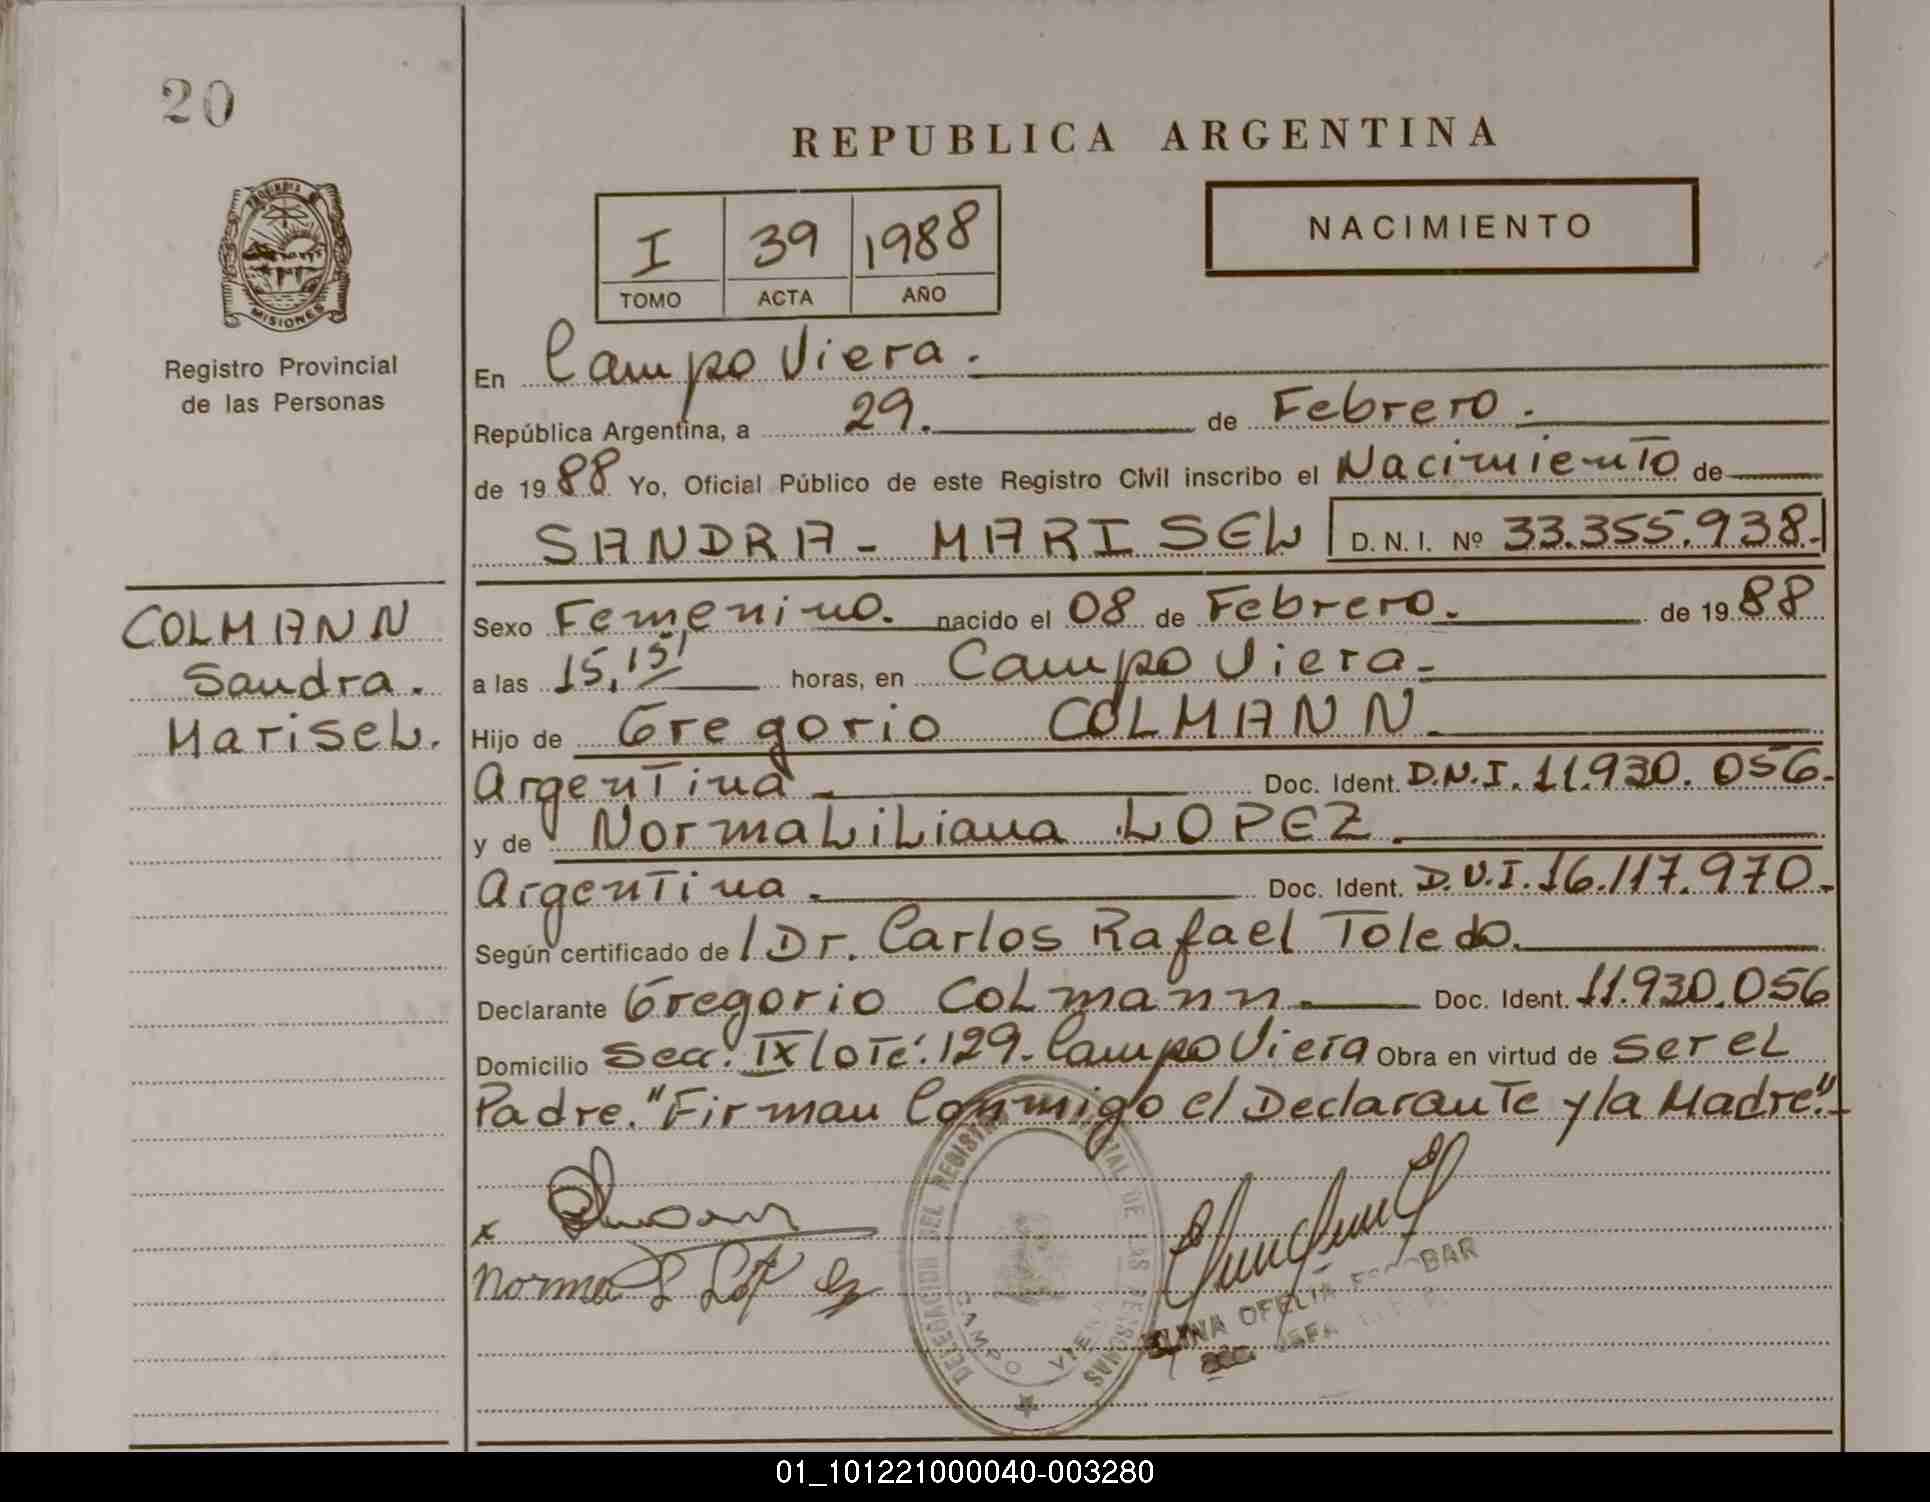 20
REPUBLICA ARGENTINA
PROVINCIA
MISIONES
Registro Provincial
de las Personas
I 39 1988
TOMO ACTA AÑO
NACIMIENTO
En Campo Viera.
República Argentina, a 29. de Febrero.
de 1988 Yo, Oficial Público de este Registro Civil inscribo el Nacimiento de
SANDRA - MARISEL D. N. I. Nº 33.355.938.-
COLMANN
Sandra.
Marisel.
Sexo Femenino. nacido el 08 de Febrero. de 1988
a las 15,15 horas, en Campo Viera.-
Hijo de Gregorio COLMANN.
Argentina.- Doc. Ident. D.N.I. 11.930.056.-
y de Norma Liliana LOPEZ.
Argentina. Doc. Ident. D.N.I. 16.117.970.-
Según certificado de / Dr. Carlos Rafael Toledo.
Declarante Gregorio Colmann. Doc. Ident. 11.930.056
Domicilio Secc. IX lote: 129. Campo Viera Obra en virtud de ser el
Padre. "Firman Conmigo el Declarante y la Madre".-
x
Norma L Lopez
DELEGACION DEL REGISTRO DE LAS PERSONAS
CAMPO VIERA
OFELIA ESCOBAR
JEFA
01_101221000040-003280